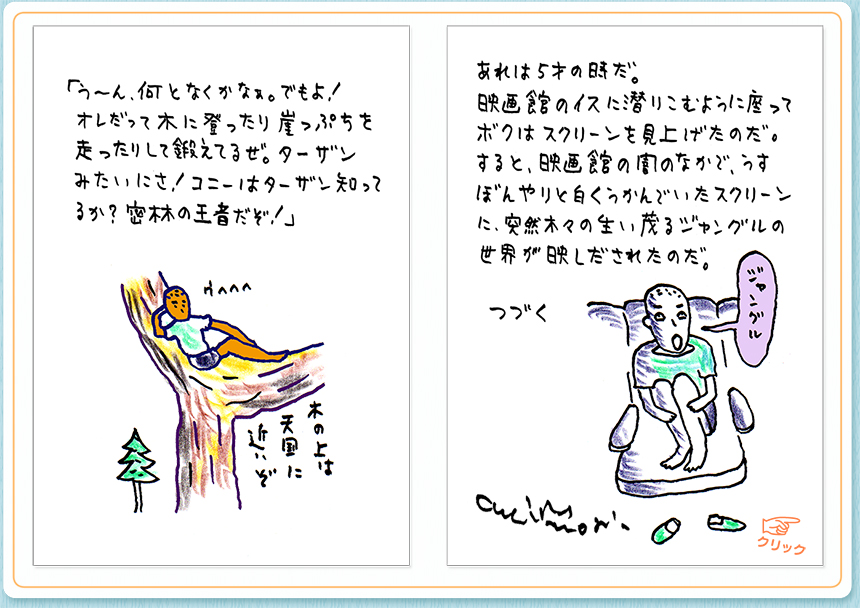 「う～ん、何となくかなぁ。でもよ！
オレだって木に登ったり崖っぷちを
走ったりして鍛えてるぜ。ターザン
みたいにさ！コニーはターザン知って
るか？密林の王者だぞ！」
ウヘヘヘ
木の上は
天国に
近いぞ
あれは5才の時だ。
映画館のイスに潜りこむように座って
ボクはスクリーンを見上げたのだ。
すると、映画館の闇のなかで、うす
ぼんやりと白くうかんでいたスクリーン
に、突然木々の生い茂るジャングルの
世界が映しだされたのだ。
つづく
ジャングル
クリック